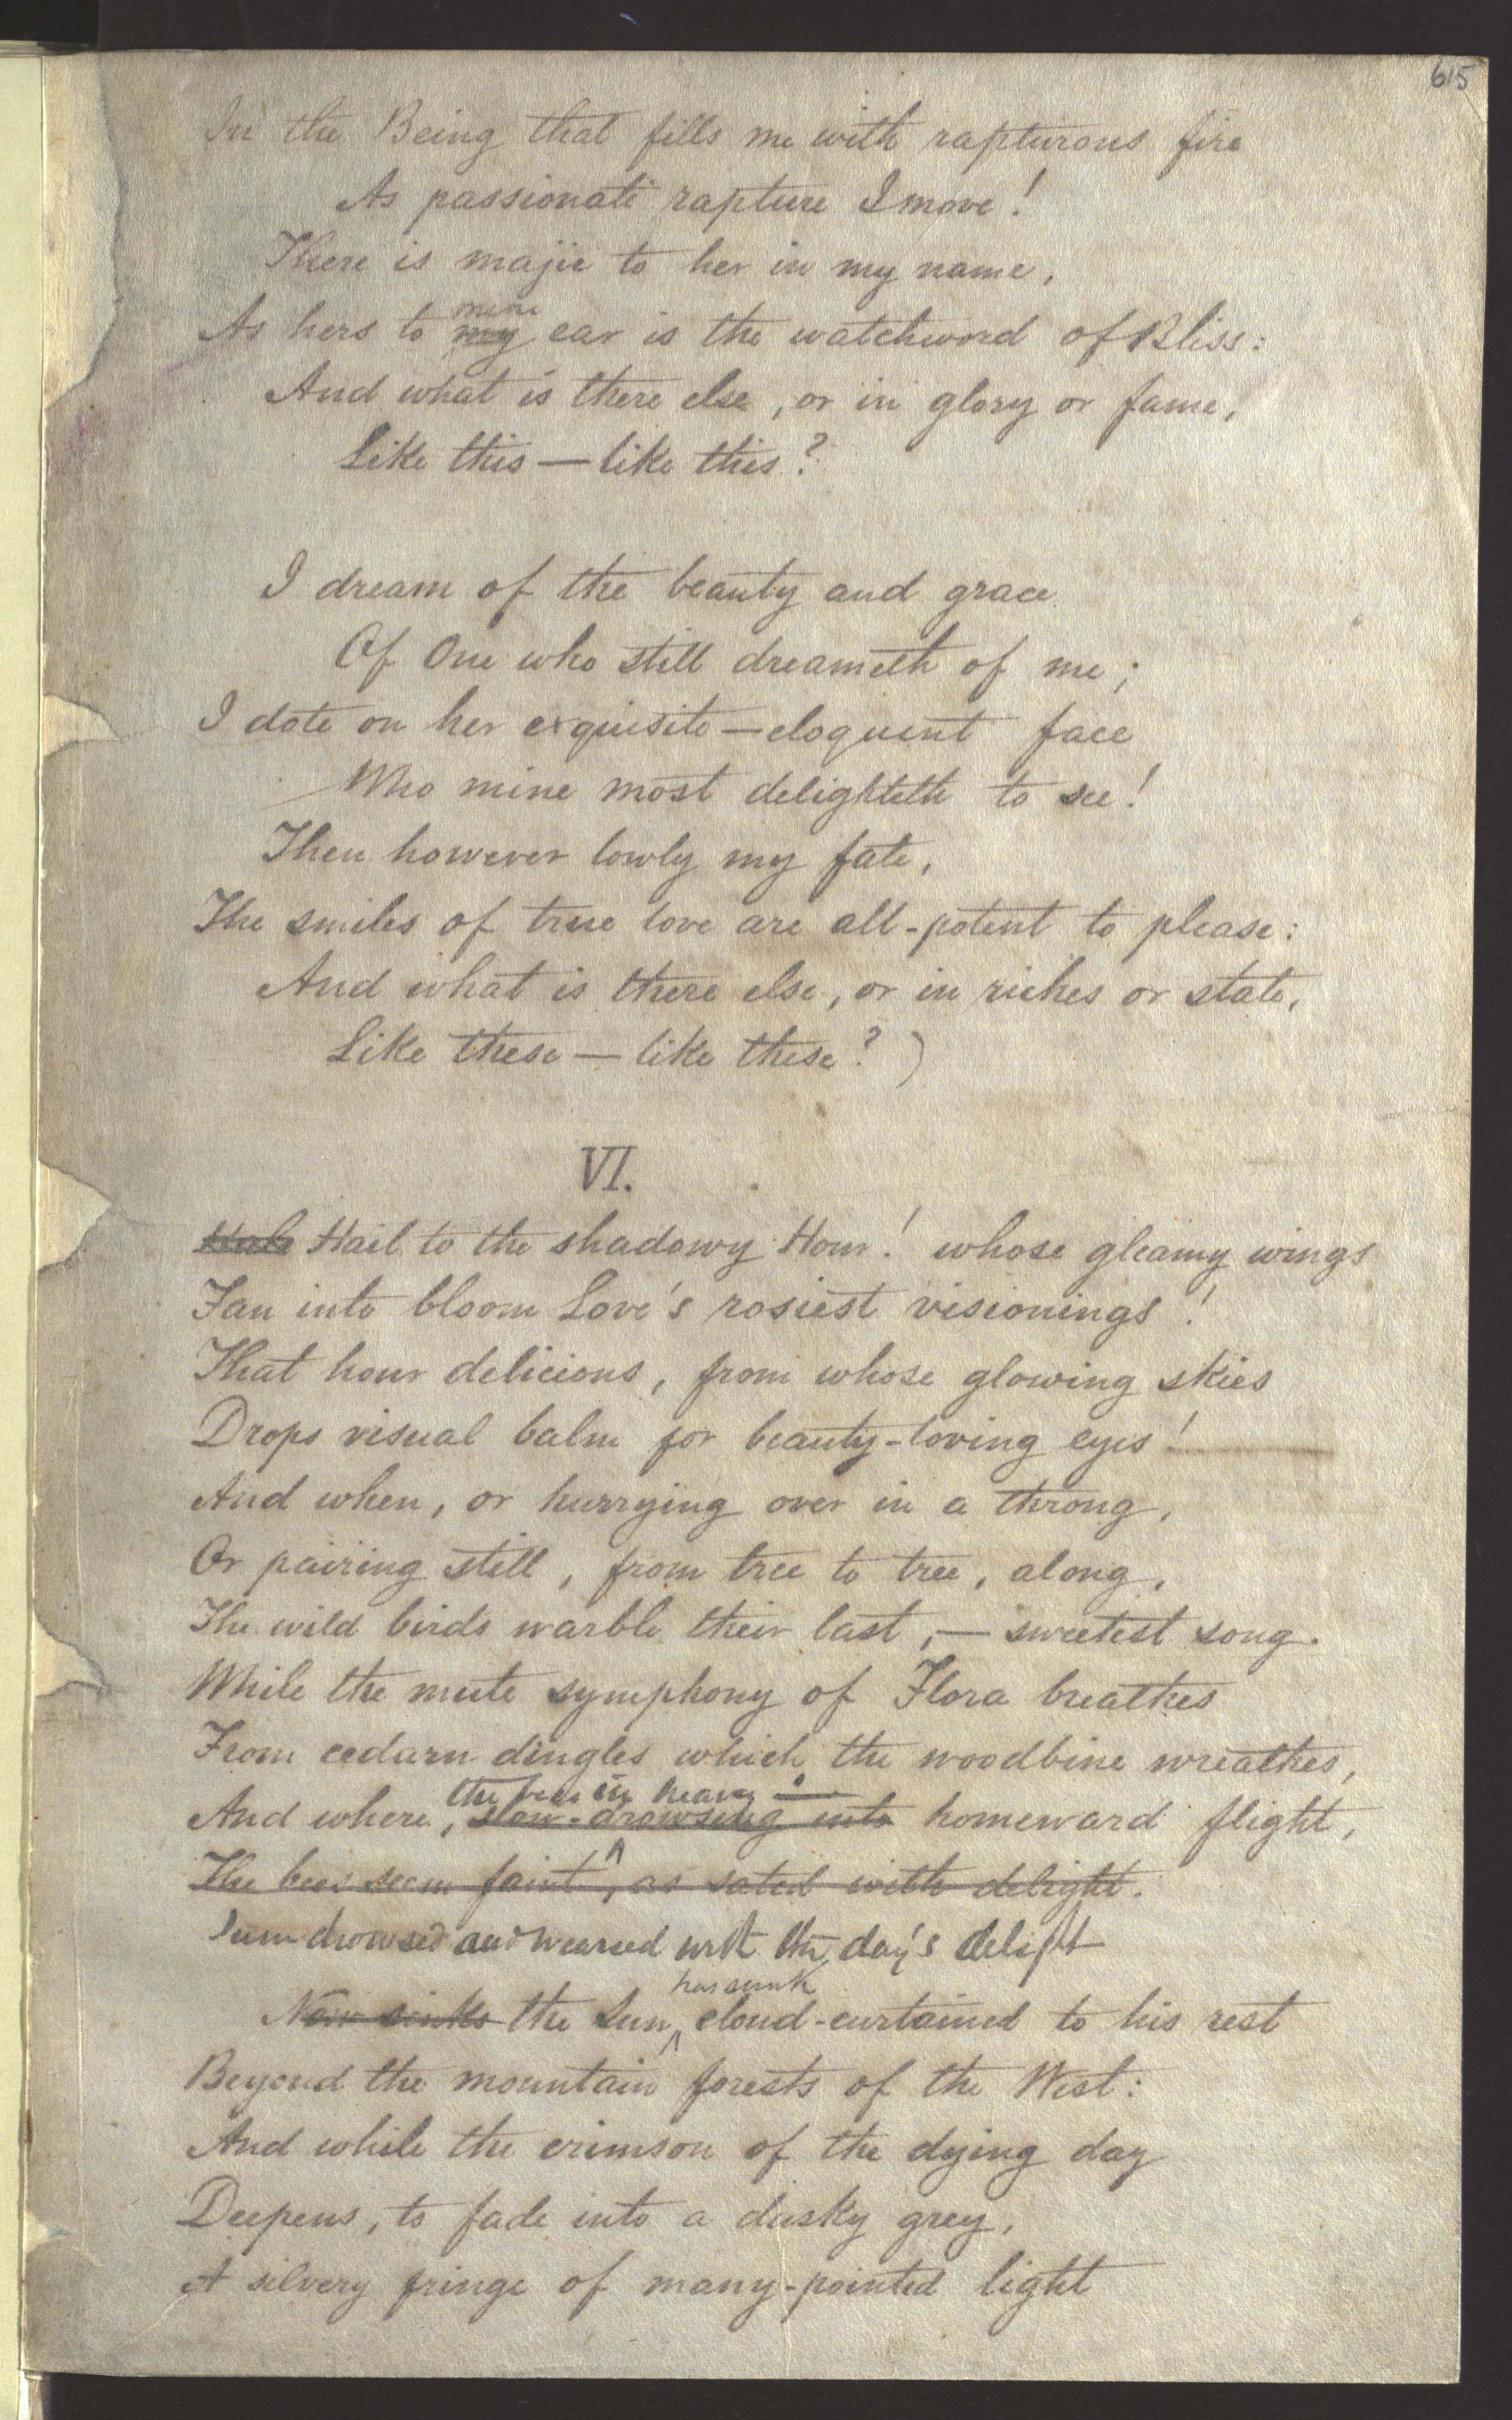 615
In the Being that fills me with rapturous fire
As passionate rapture I move!
There is majic to her in my name,
mine
As hers to my ear is the watchword of Bliss:
And what is there else, or in glory or fame,
Like this — like this?
I dream of the beauty and grace
Of One who still dreameth of me;
I dote on her exquisite — eloquent face
Who mine most delighteth to see!
Then however lowly my fate,
The smiles of true love are all-potent to please:
And what is there else, or in riches or state,
Like these — like these?)
VI.
Hail to the shadowy Hour! whose gleamy wings
Fan into bloom Love's rosiest visionings!
That hour delicious, from whose glowing skies
Drops visual balm for beauty-loving eyes!
And when, or hurrying over in a throng,
Or pairing still, from tree to tree, along,
The wild birds warble their last, — sweetest song.
While the mute symphony of Flora breathes
From cedarn dingles which the woodbine wreathes,
the bees in heavy
And where, slow-drowsing into homeward flight,
The bees seem faint, as sated with delight.
Seem drowsed and wearied with the day's delight
has sunk
Now sinks the Sun cloud-curtained to his rest
Beyond the mountain forests of the West:
And while the crimson of the dying day
Deepens, to fade into a dusky grey,
A silvery fringe of many-pointed light